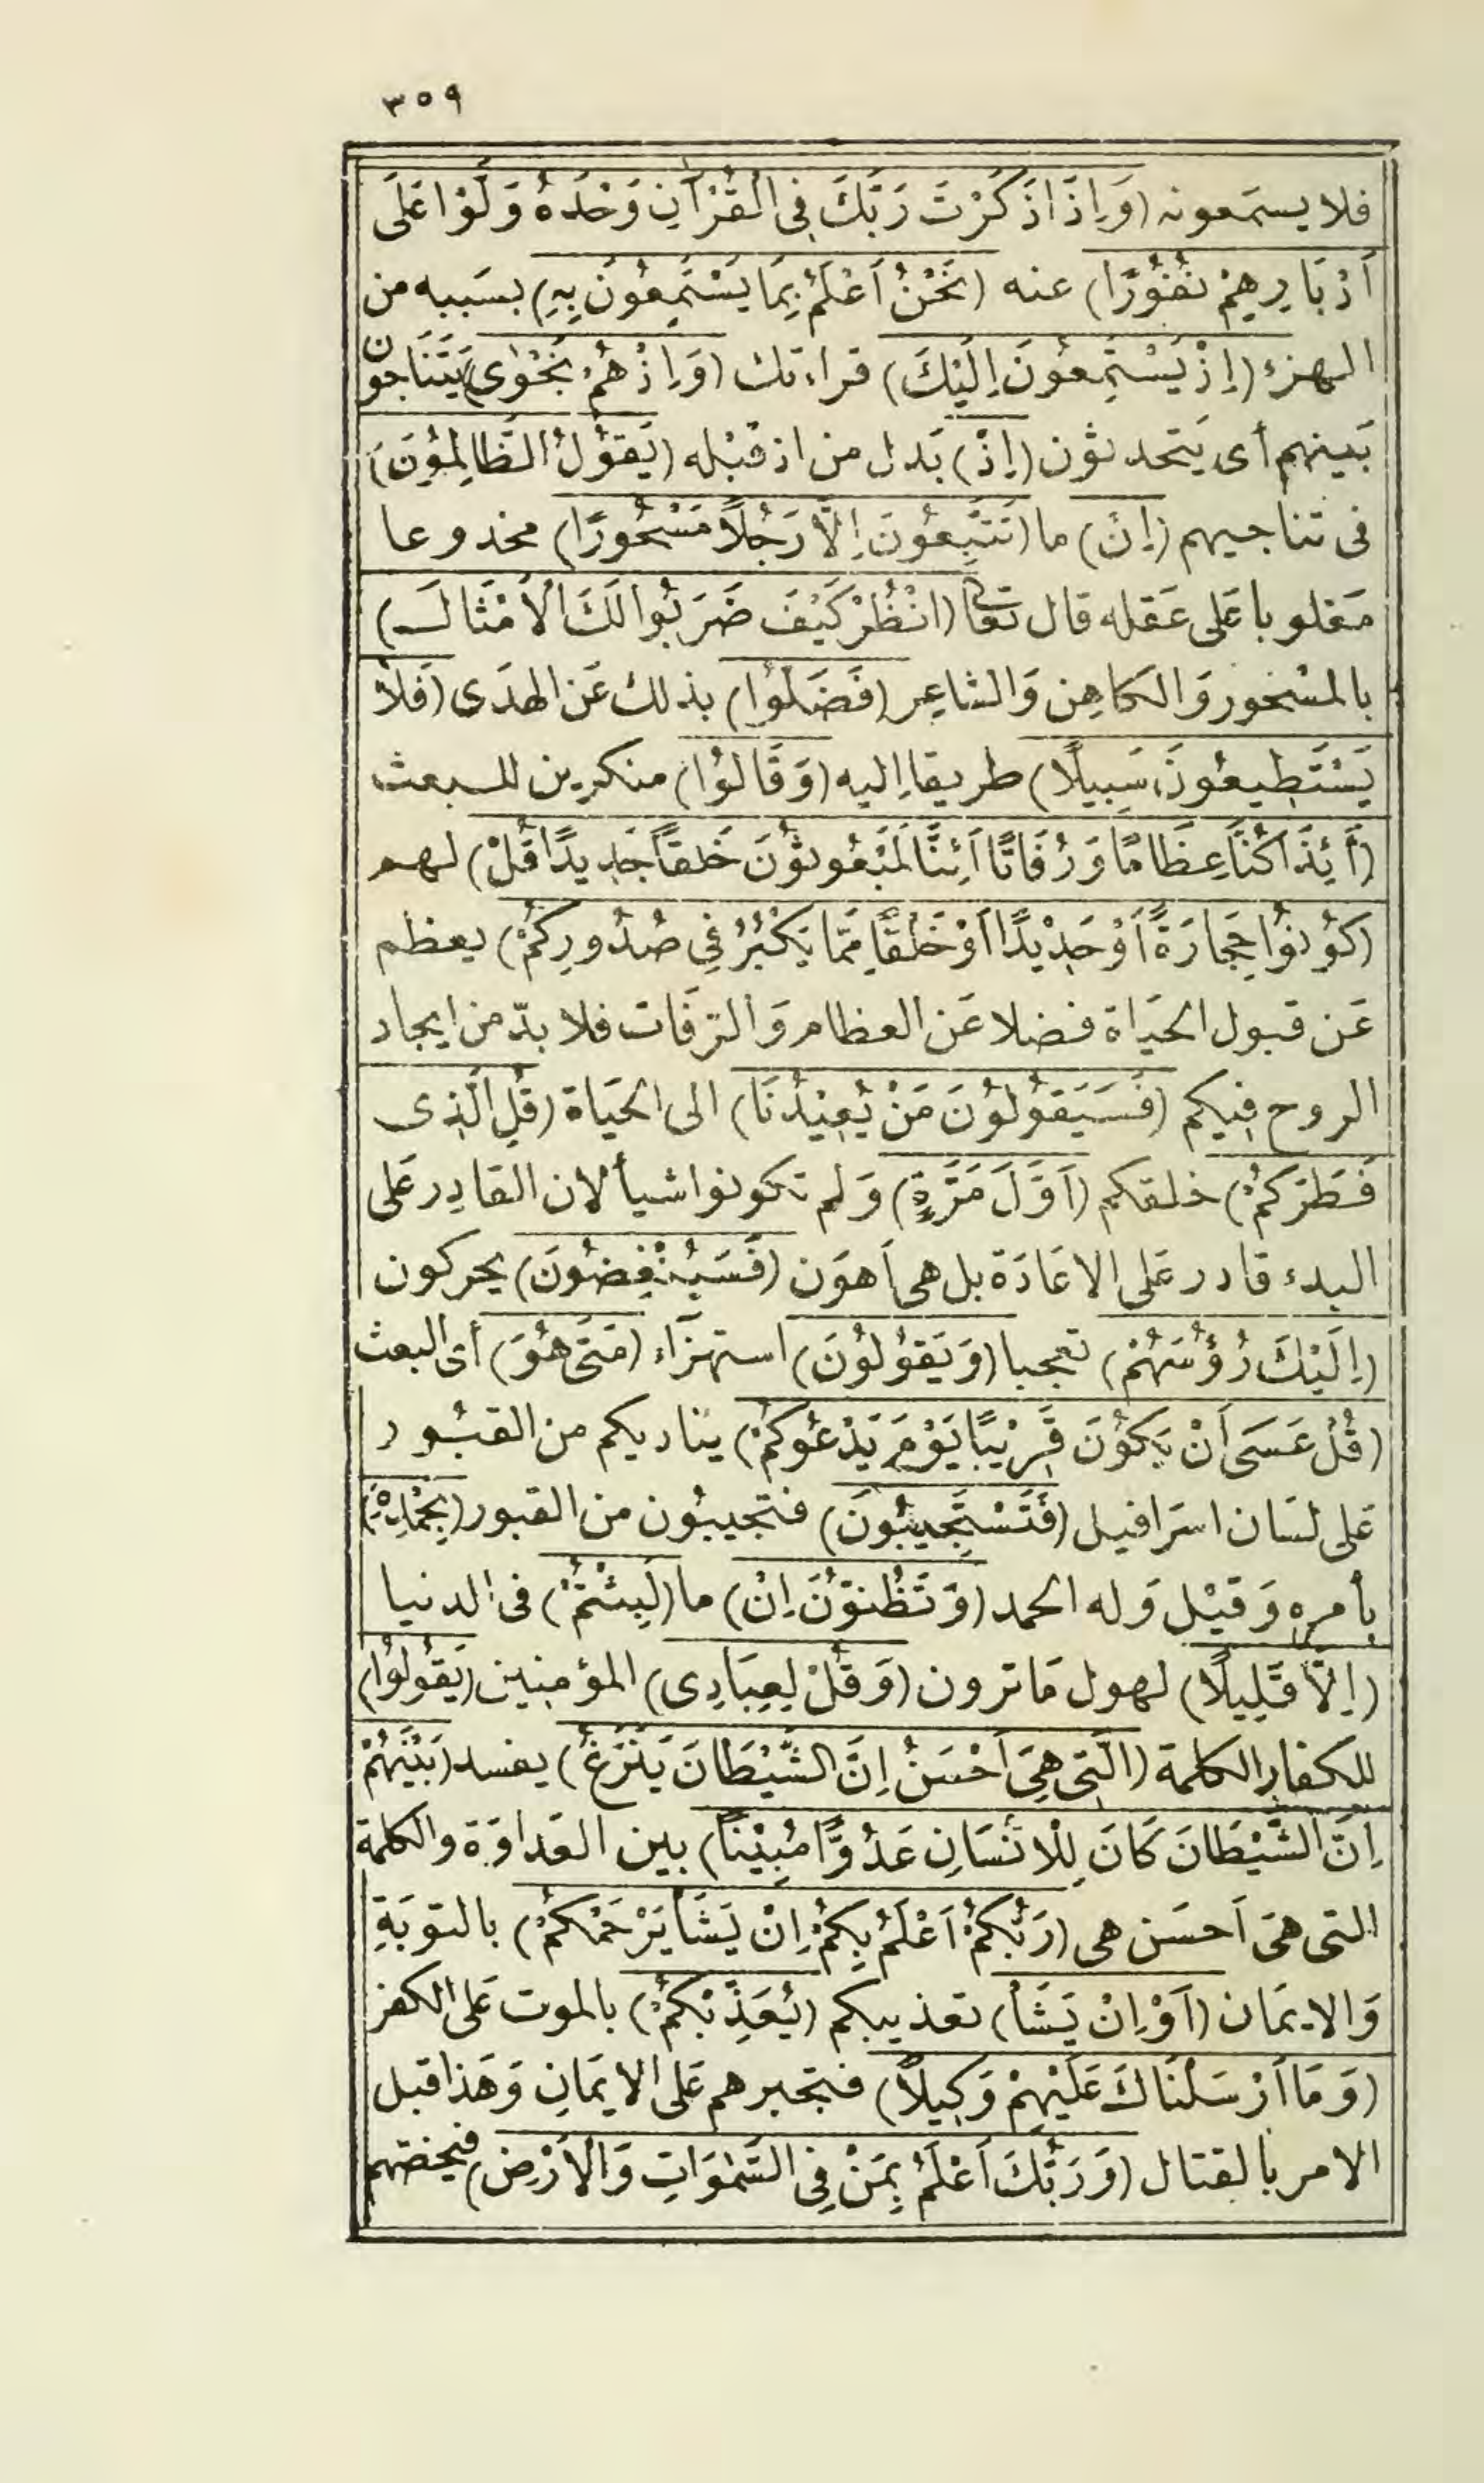 ٣٥٩
فلا يسمَعونه (وَاِذَا ذَكَرْتَ رَبَّكَ فِى الْقُرْآنِ وَحْدَهُ وَلَّوْا عَلَى
اَدْبَارِهِمْ نُفُورًا) عنه (نَحْنُ اَعْلَمُ بِمَا يَسْتَمِعُونَ بِهِ) بسَببه من
الهزء (اِذْ يَسْتَمِعُونَ اِلَيْكَ) قراءتك (وَاِذْ هُمْ نَجْوٰى) يَتَنَاجون
بَينهم أى يَتحدثون (اِذْ) بَدل من اذ قبْله (يَقُولُ الظَّالِمُونَ)
فى تناجيهم (اِنْ) ما (تَتَّبِعُونَ اِلَّا رَجُلًا مَسْحُورًا) مخدوعا
مَغلوبا عَلى عَقله قال تعَالى (انْظُرْ كَيْفَ ضَرَبُوا لَكَ الْاَمْثَالَ)
بالمسْحور وَالكاهِن وَالشاعِر (فَضَلُّوا) بذلك عَن الهدَى (فَلَا
يَسْتَطِيعُونَ سَبِيلًا) طريقا اِليه (وَقَالُوا) منكرين للبعث
(أَئِذَا كُنَّا عِظَامًا وَرُفَاتًا اَئِنَّا لَمَبْعُوثُونَ خَلقًا جَدِيدًا قُلْ) لهم
(كُونُوا حِجَارَةً اَوْ حَدِيْدًا اَوْ خَلْقًا مِمَّا يَكْبُرُ فِى صُدُورِكُمْ) يعظم
عَن قبول الحيَاة فضلا عَن العظام وَالرفَات فلا بدّ من ايجاد
الروح فِيكم (فَسَيَقُولُونَ مَنْ يُعِيْدُنَا) الى الحيَاة (قُلِ الَّذِى
فَطَرَكُمْ) خلقكم (اَوَّلَ مَرَّةٍ) وَلم تكونوا شيأ لان القادِر عَلى
البدء قادر عَلى الاعَادَة بل هى اَهوَن (فَسَيُنْغِضُونَ) يحركون
(اِلَيْكَ رُؤُسَهُمْ) تعجبا (وَيَقُولُونَ) استهزَاء (مَتَى هُوَ) أى البعث
(قُلْ عَسَى اَنْ يَكُونَ قَرِيْبًا يَوْمَ يَدْعُوكُمْ) يناديكم من القبُور
عَلى لسَان اسرَافيل (فَتَسْتَجِيبُونَ) فتجيبُون من القبور (بِحَمْدِهِ)
بأمرِه وَقيْل وَله الحمد (وَتَظُنُّونَ اِنْ) ما (لَبِثْتُمْ) فى الدنيا
(اِلَّا قَلِيلًا) لهول مَا ترون (وَقُلْ لِعِبَادِى) المؤمِنين (يَقُولُوا)
للكفارِ الكلمة (الَّتِى هِىَ اَحْسَنُ اِنَّ الشَّيْطَانَ يَنْزَغُ) يفسد (بَيْنَهُمْ
اِنَّ الشَّيْطَانَ كَانَ لِلْاِنْسَانِ عَدُوًّا مُبِيْنًا) بين العَداوَة والكلمة
التى هىَ اَحسَن هى (رَبُّكُمْ اَعْلَمُ بِكُمْ اِنْ يَشَأْ يَرْحَمْكُمْ) بالتوبَةِ
وَالايمَان (اَوْ اِنْ يَشَأْ) تعذيبكم (يُعَذِّبْكُمْ) بالموت عَلى الكفر
(وَمَا اَرْسَلْنَاكَ عَلَيْهِمْ وَكِيلًا) فتجبرهم عَلى الايمَانِ وَهَذا قبل
الامر بالقتال (وَرَبُّكَ اَعْلَمُ بِمَنْ فِى السَّمٰوَاتِ وَالْاَرْضِ) فيخصّهم